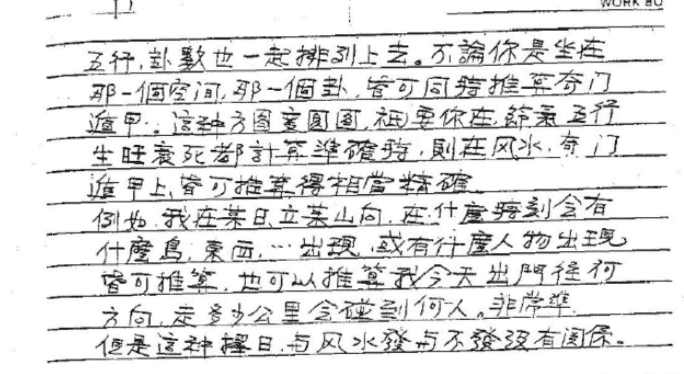 WORK BO
五行,卦數也一起排列上去。不論你是坐在
那一個空间,那一個卦,皆可同時推算奇门
遁甲。這种方图套圓图,祇要你在,節氣五行
生旺衰死都計算準確時,則在风水,奇门
遁甲上,皆可推算得相當精確。
例如,我在某日,立某山向,在什麼時刻會有
什麼鳥,東西,…出現,或有什麼人物出現
皆可推算,也可以推算我今天出門往何
方向,走多少公里会碰到何人。非常準.
但是這种擇日,与风水發与不發没有関係。